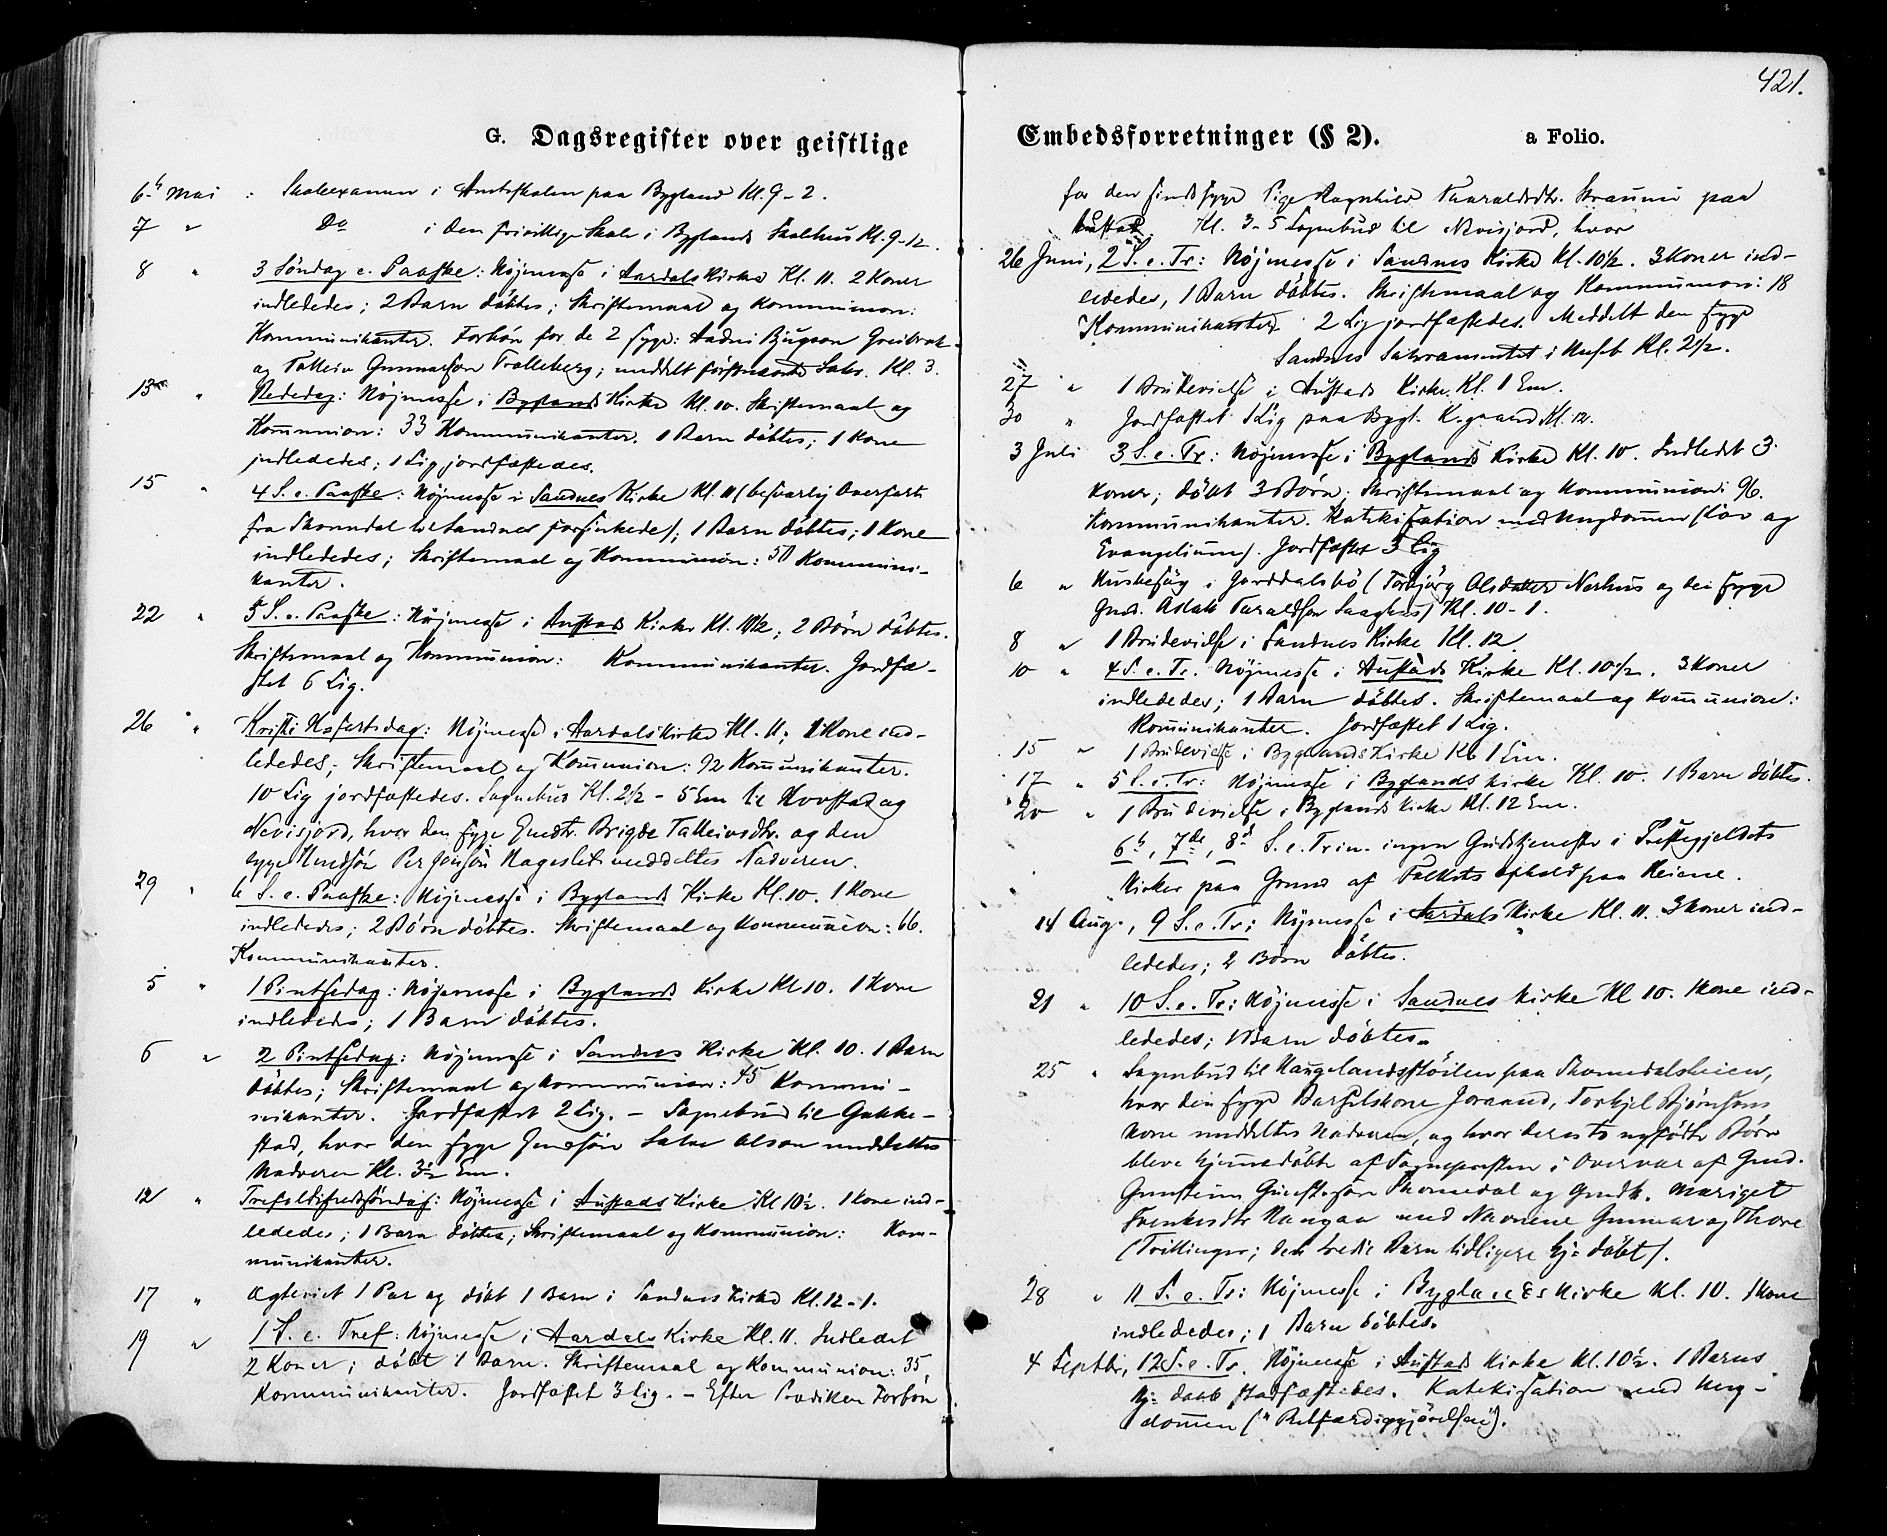 421.
G. Dagsregister over geistlige
Embedsforretninger (§ 2). a Folio.
6h Mai : Skoleexamen i Amtsskolen paa Bygland Kl. 9-2.
7 " Do i den frivillige Skole i Byglands Skolehus Kl. 9-12.
8 " 3 Søndag e. Paaske: Højmesse i Aardals Kirke Kl. 11. 2 Koner
indlededes; 2 Barn döbtes; Skriftemaal og Kommunion:
Kommunikanter. Forbön for de 2 syge: Aadni Bjugson
og Talleiv Gunnarson Trolleberg; meddelt förstnævnte Sakr. Kl. 3.
13 " Bededag: Højmesse i Byglands Kirke Kl. 10. Skriftemaal og
Kommunion: 33 Kommunikanter. 1 Barn döbtes; 1 Kone
indlededes; 1 Lig jordfæstedes.
15 " 4 S. e. Paaske: Højmesse i Sandnes Kirke Kl. 11 (besværlig Overfart
fra Skomdal til Sandnes forsinkede); 1 Barn döbtes; 1 Kone
indlededes; Skriftemaal og Kommunion: 50 Kommuni-
kanter.
22 " 5 S. e. Paaske: Højmesse i Austads Kirke Kl. 10 1/2; 2 Börn döbtes.
Skriftemaal og Kommunion: Kommunikanter. Jordfæ-
stet 6 Lig.
26 " Kristi Hfartsdag: Højmesse i Aardals Kirke Kl. 11; 1 Kone ind-
lededes; Skriftemaal og Kommunion: 92 Kommunikanter.
10 Lig jordfæstedes. Sognebud Kl. 2 1/2 - 5 Em til Hovstad og
Nevisjord, hvor den syge Gmdtr. Brigde Talleivsdtr. og den
syge Gmdsön Per Jonson Hageslet meddeltes Nadveren.
29 " 6 S. e. Paaske: Højmesse i Byglands Kirke Kl. 10. 1 Kone
indlededes; 2 Börn döbtes. Skriftemaal og Kommunion: 66.
Kommunikanter.
5 " 1 Pintsedag: Højmesse i Byglands Kirke Kl 10. 1 Kone
indlededes; 1 Barn döbtes.
6 " 2 Pintsedag: Højmesse i Sandnes Kirke Kl. 10. 1 Barn
döbtes; Skriftemaal og Kommunion: 45 Kommu-
nikanter. Jordfæstet 2 Lig. - Sognebud til Gakke-
stad, hvor den syge Gmdsön Salve Olson meddeltes
Nadveren Kl. 3 1/2 Em.
12 " Trefoldighedssöndag: Højmesse i Austads Kirke Kl 10 1/2. 1 Kone ind-
lededes; 1 Barn döbtes; Skriftemaal og Kommunion: Kom-
munikanter.
17 " Ægteviet 1 Par og döbt 1 Barn i Sandnes Kirke Kl. 12-1.
19 " 1 S. e. Tref: Højmesse i Aardals Kirke Kl. 11. Indledet
2 Koner; döbt 1 Barn. Skriftemaal og Kommunion: 35
Kommunikanter. Jordfæstet 3 Lig. - Efter Prædiken Forbön
for den sindssyge Pige Ragnhild Taaraldsdtr. Straume paa
Austad. Kl. 3-5 Sognebud til Nevisjord, hvor
26 Juni, 2 S. e. Tr: Højmesse i Sandnes Kirke Kl. 10 1/2. 3 Koner ind-
lededes, 1 Barn döbtes. Skriftemaal og Kommunion: 18
Kommunikanter. 2 Lig jordfæstedes. Meddelt den syge
Sandnes Sakramentet i Kl. 2 1/2.
27 " 1 Brudevielse i Austads Kirke. Kl. 1 Em.
30 " Jordfæstet 1 Lig paa Bygl. K.gaard Kl. 12.
3 Juli 3 S. e. Tr: Højmesse i Byglands Kirke Kl. 10. Indledet 3
Koner; döbt 3 Börn; Skriftemaal og Kommunion: 96.
Kommunikanter. Katekisation med Ungdommen (Lov og
Evangelium). Jordfæstet 3 Lig
6 " Husbesög i Jorddalsbö (Torbjörg Olsdatter Nerhus og den syge
Gmd. Aslak Taraldsen Saaghus) Kl. 10-1.
8 " 1 Brudevielse i Sandnes Kirke Kl. 12.
10 " 4 S. e. Tr. Højmesse i Austads Kirke Kl. 10 1/2. 3 Koner
indlededes; 1 Barn döbtes. Skriftemaal og Kommunion:
Kommunikanter. Jordfæstet 1 Lig.
15 " 1 Brudevielse i Byglands Kirke Kl 1 Em.
17 " 5 S. e. Tr: Højmesse i Byglands Kirke Kl. 10. 1 Barn döbtes.
20 " 1 Brudevielse i Byglands Kirke Kl. 12 Em.
6te, 7de, 8d S. e. Trin. ingen Gudstjeneste i Præstegjeldets
Kirker paa Grund af Folkets Ophold paa Heiene.
14 Aug., 9 S. e. Tr: Højmesse i Aardals Kirke Kl. 11. 3 Koner ind-
lededes; 2 Börn döbtes.
21 " 10 S. e. Tr: Højmesse i Sandnes Kirke Kl 10. 1 Kone ind-
lededes; 1 Barn döbtes.
25 " Sognebud til Haugelandsstöilen paa Skomedalsheien,
hvor den syge Barselskone Joraand, Torkjel Bjørnsons
Kone meddeltes Nadveren, og hvor derests nyfödte Börn
bleve hjemmedöbte af Sognepresten i Overvær af Gmd.
Gunsteinsön Skomedal og Gmdk. Mariget
Haugaa med Navnene Gunnar og Thore
(Trillinger; det tredie Barn tidligere hj= döbt).
28 " 11 S. e. Tr: Højmesse i Byglands Kirke Kl. 10. 1 Kone
indlededes; 1 Barn döbtes.
4 Septbr, 12 S. e. Tr. Højmesse i Austads Kirke Kl. 10 1/2. 1 Barns
hj= daab stadfæstedes. Katekisation med Ung-
dommen ("Retfærdiggjörelsen").